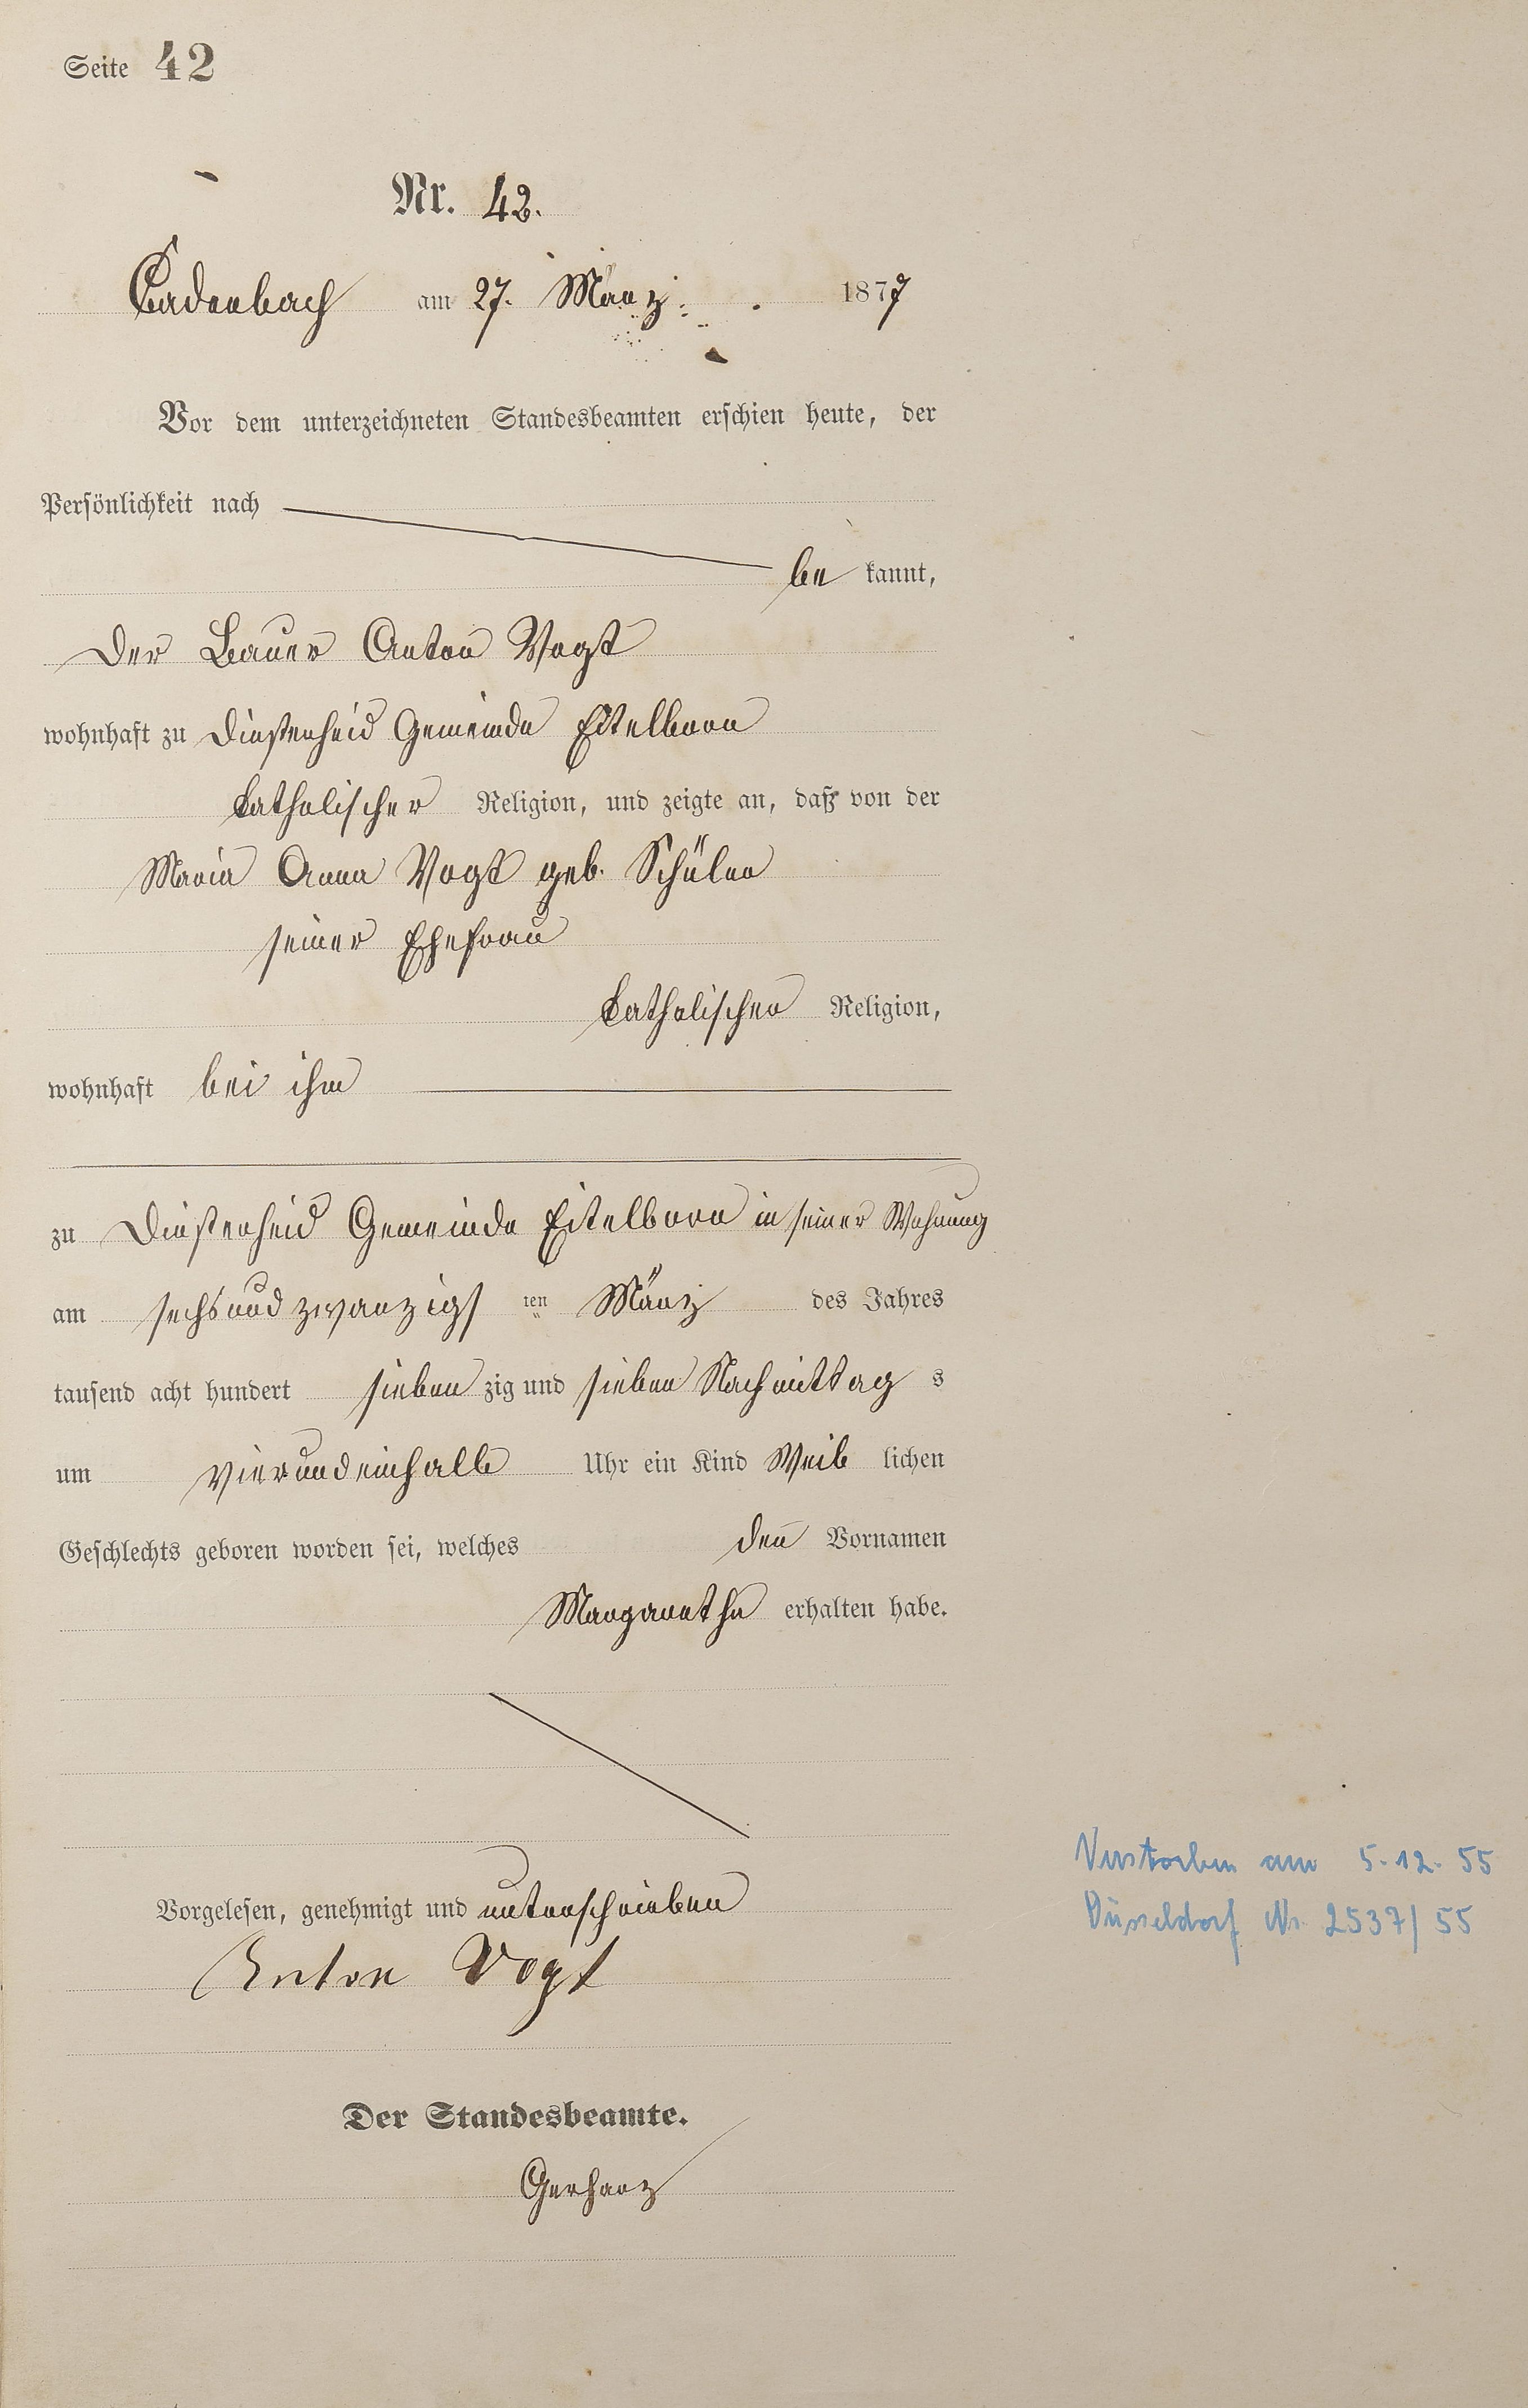 Seite 42
Nr. 42.
Cadenbach am 27. März 1877
Vor dem unterzeichneten Standesbeamten erschien heute, der
Persönlichkeit nach
be kannt,
Der Bauer Anton Vogt
wohnhaft zu Diesterheid Gemeinde Eitelborn
katholischer Religion, und zeigte an, daß von der
Maria Anna Vogt geb. Schüler
seiner Ehefrau
katholischer Religion,
wohnhaft bei ihm
zu Diesterheid Gemeinde Eitelborn in seiner Wohnung
am sechsundzwanzigs ten März des Jahres
tausend acht hundert sieben zig und sieben Nachmittag s
um vierundeinhalb Uhr ein Kind Weib lichen
Geschlechts geboren worden sei, welches den Vornamen
Margaretha erhalten habe.
Verstorben am 5.12.55
Düsseldorf Nr. 2537/55
Vorgelesen, genehmigt und unterschrieben
Anton Vogt
Der Standesbeamte.
Gerharz